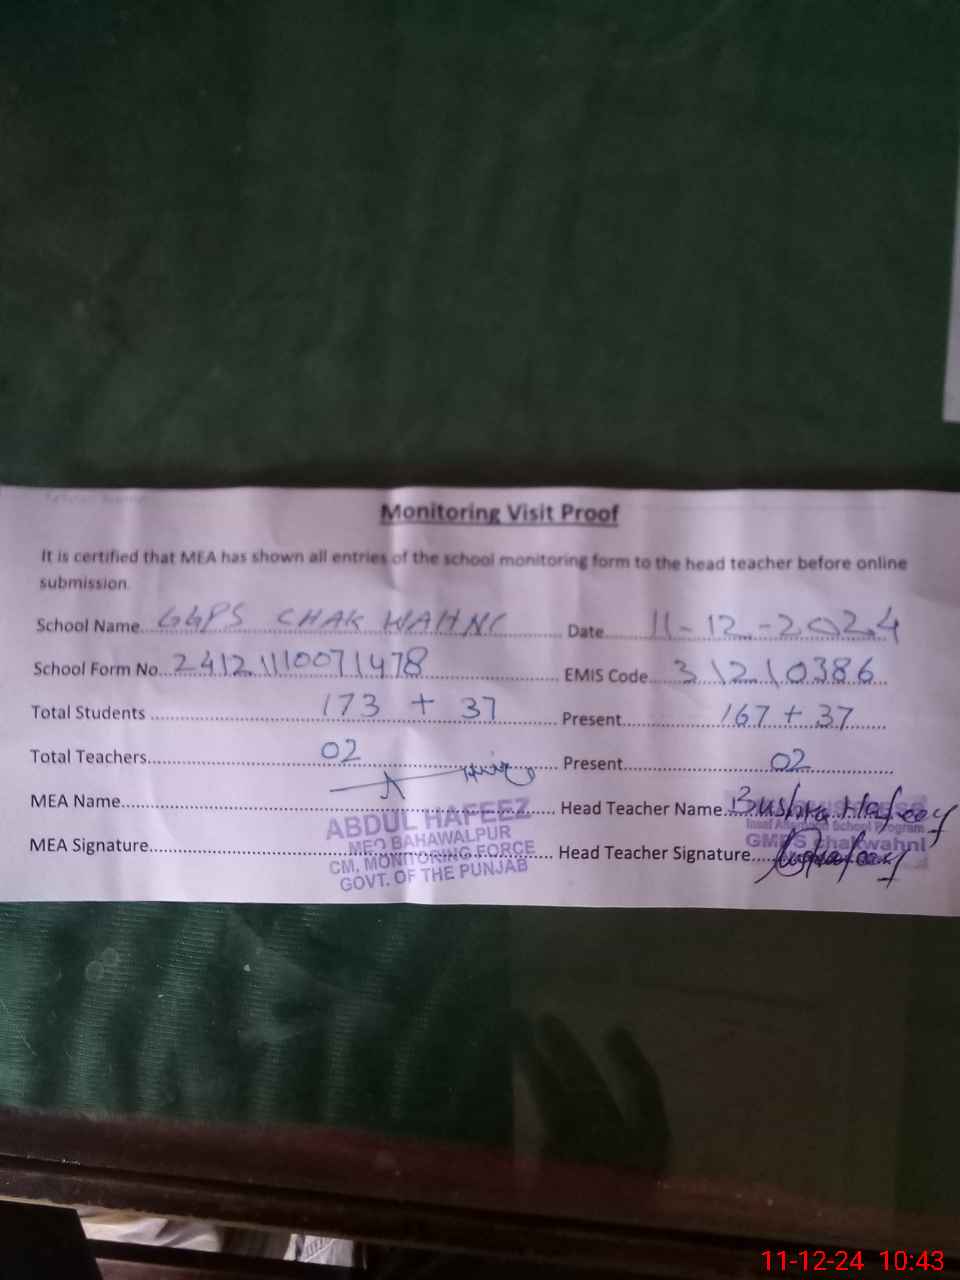 Monitoring Visit Proof
It is certified that MEA has shown all entries of the school monitoring form to the head teacher before online
submission.
School Name GGPS CHAK WAHNI Date 11-12-2024
School Form No. 24121110071478 EMIS Code 31210386
Total Students 173 + 37 Present 167 + 37
Total Teachers 02 Present 02
MEA Name Head Teacher Name Bushra Hafeez
MEA Signature Head Teacher Signature
ABDUL HAFEEZ
MEO BAHAWALPUR
CM, MONITORING FORCE
GOVT. OF THE PUNJAB
Insaf School Program
Chakwahni
11-12-24 10:43